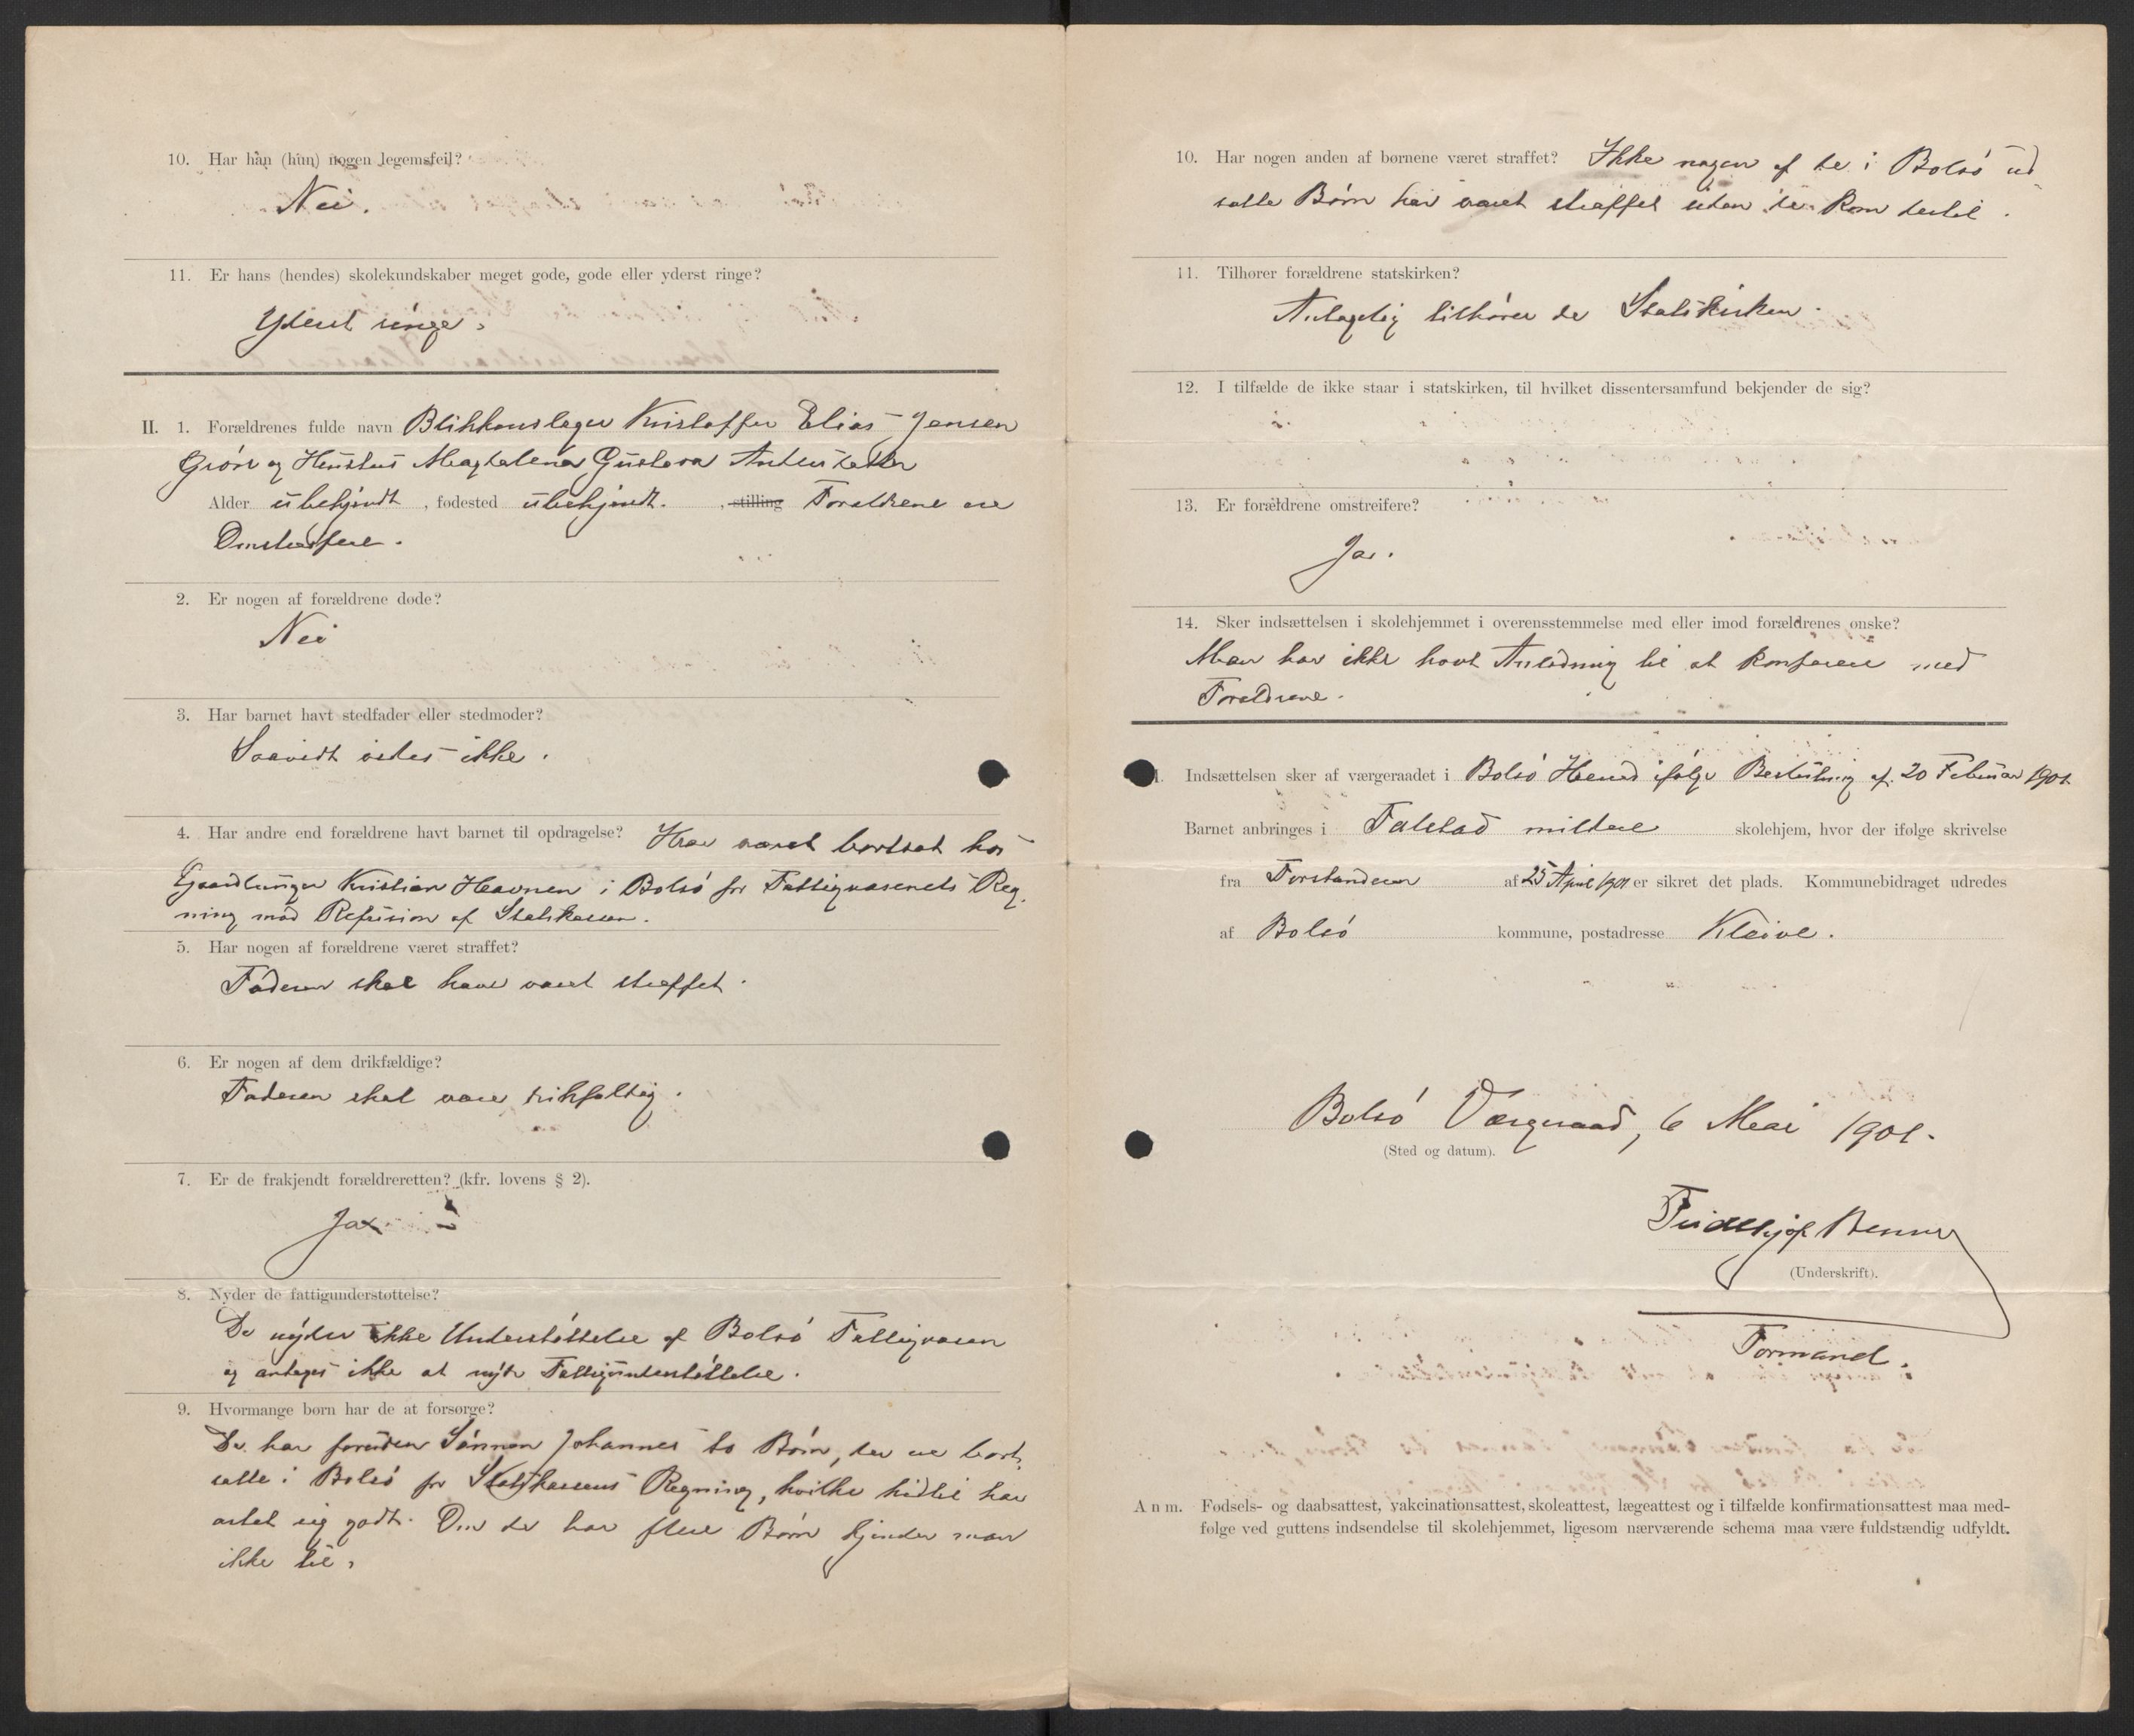 10. Har han (hun) nogen legemsfeil?
Nei.
11. Er hans (hendes) skolekundskaber meget gode, gode eller yderst ringe?
Yderst ringe.
II. 1. Forældrenes fulde navn Blikkenslager Kristoffer Elias Jensen
Grøn og Hustru Magdalena Gustava Andersdatter
Alder ubekjendt, fødested ubekjendt. , stilling Forældrene ere
Omstreifere.
2. Er nogen af forældrene døde?
Nei
3. Har barnet havt stedfader eller stedmoder?
Saavidt vides ikke.
4. Har andre end forældrene havt barnet til opdragelse? Har været bortsat hos
Gaardbruger Kristian Havnen i Bolsø for Fattigvæsenets Reg-
ning mod Refusion af Statskassen.
5. Har nogen af forældrene været straffet?
Faderen skal have været straffet.
6. Er nogen af dem drikfældige?
Faderen skal være drikfældig.
7. Er de frakjendt forældreretten? (kfr. lovens § 2).
Ja
8. Nyder de fattigunderstøttelse?
De nyder ikke Understøttelse af Bolsø Fattigvæsen
og antages ikke at nyde Fattigunderstøttelse.
9. Hvormange børn har de at forsørge?
De har foruden Sønnen Johannes to Børn, der ere bort-
satte i Bolsø for Statskassens Regning, hvilke hidtil har
artet sig godt. Om de har flere Børn kjender man
ikke til.
10. Har nogen anden af børnene været straffet? Ikke nogen af de i Bolsø ud
satte Børn har været straffet siden de kom dertil.
11. Tilhører forældrene statskirken?
Antagelig tilhører de Statskirken.
12. I tilfælde de ikke staar i statskirken, til hvilket dissentersamfund bekjender de sig?
13. Er forældrene omstreifere?
Ja.
14. Sker indsættelsen i skolehjemmet i overensstemmelse med eller imod forældrenes ønske?
Man har ikke havt Anledning til at konferere med
Forældrene.
Indsættelsen sker af værgeraadet i Bolsø Herred ifølge Beslutning af 20 Februar 1901
Barnet anbringes i Falstad mildere skolehjem, hvor der ifølge skrivelse
fra Forstanderen af 25 April 1901 er sikret det plads. Kommunebidraget udredes
af Bolsø kommune, postadresse Kleive.
Bolsø Værgeraad, 6 Mai 1901.
(Sted og datum).
(Underskrift).
Formand.
Anm. Fødsels- og daabsattest, vakcinationsattest, skoleattest, lægeattest og i tilfælde konfirmationsattest maa med-
følge ved guttens indsendelse til skolehjemmet, ligesom nærværende schema maa være fuldstændig udfyldt.